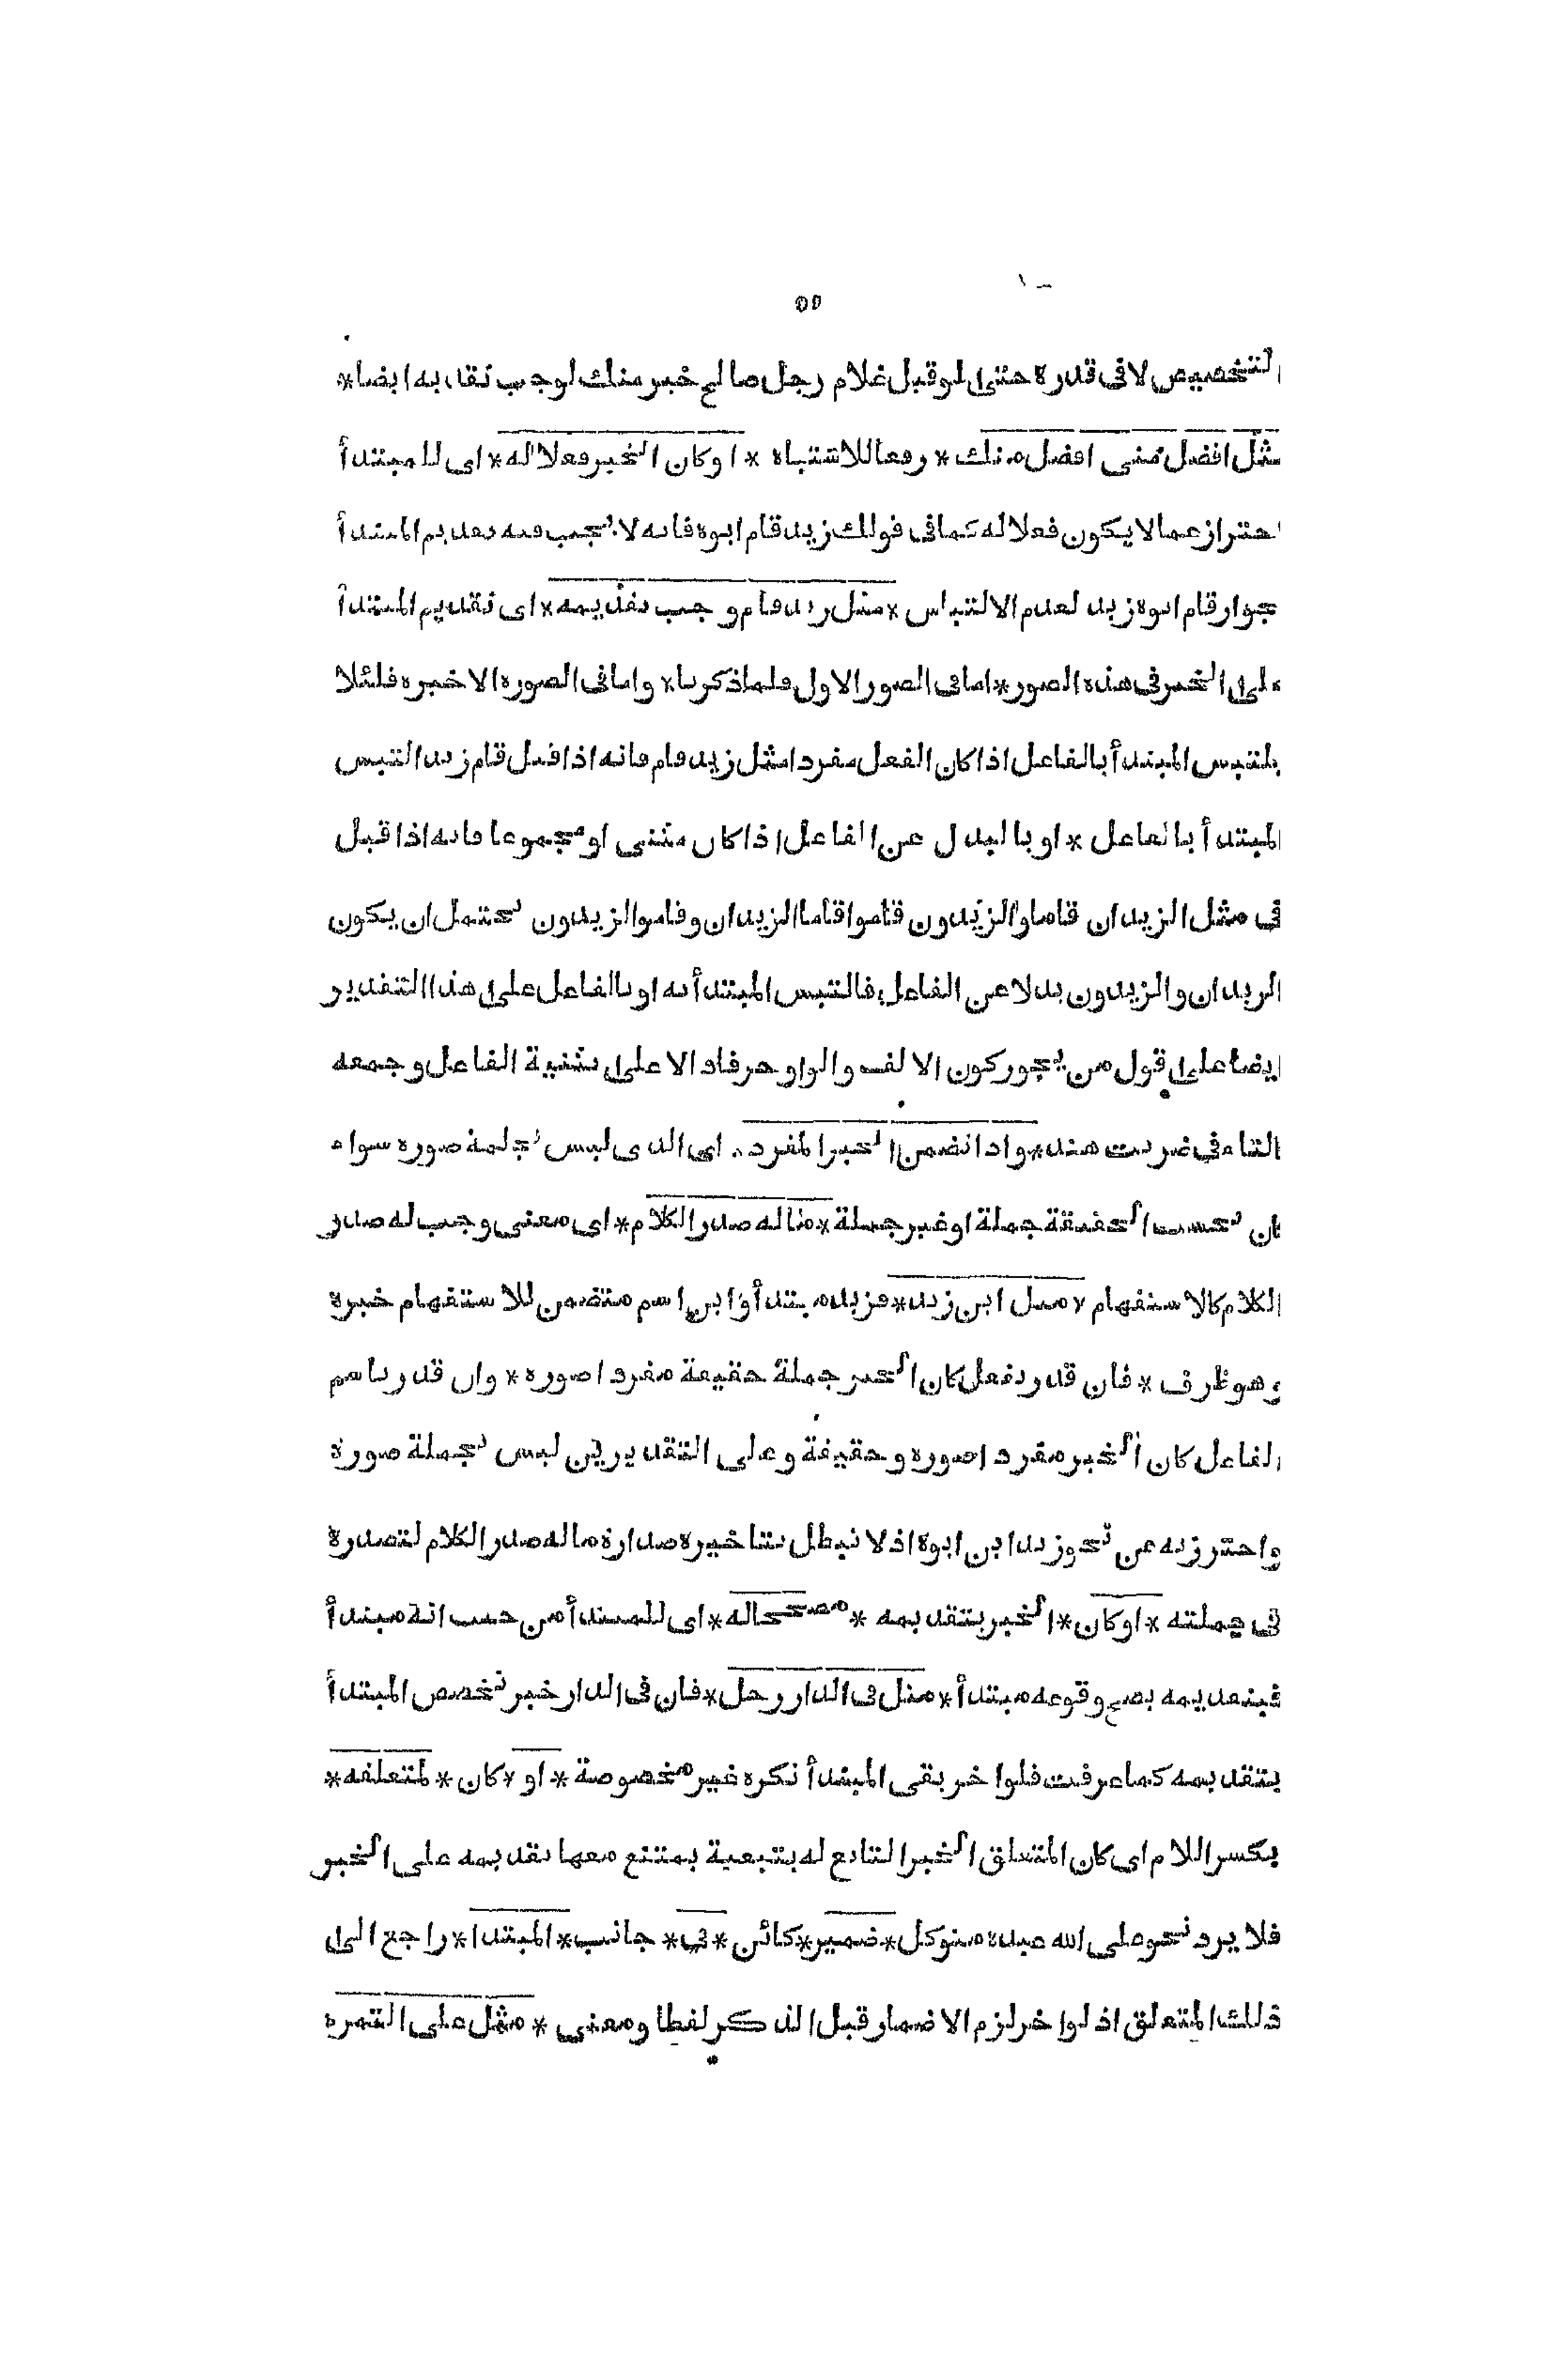 ٥٥
التخصيص لا فى قدره حتى لو قيل غلام رجل صالح خير منك لوجب تقديمه ايضا*
مثل افضل منى افضل منك * رفعا للاشتباه * او كان الخبر فعلا له * اى للمبتدأ
احتراز عما لا يكون فعلا له كما فى قولك زيد قام ابوه فانه لا يجب فيه تقديم المبتدأ
لجواز قام ابوه زيد لعدم الالتباس * مثل زيد قام وجب تقديمه * اى تقديم المبتدأ
على الخبر فى هذه الصور * اما فى الصور الاول فلما ذكرنا * واما فى الصورة الاخيرة فلئلا
يلتبس المبتدأ بالفاعل اذا كان الفعل مفردا مثل زيد قام فانه اذا قيل قام زيد التبس
المبتدأ بالفاعل * او بالبدل عن الفاعل اذا كان مثنى او مجموعا فانه اذا قيل
فى مثل الزيدان قاما والزيدون قاموا قاما الزيدان وقاموا الزيدون يحتمل ان يكون
الزيدان والزيدون بدلا عن الفاعل فالتبس المبتدأ به او بالفاعل على هذا التقدير
ايضا على قول من يجوز كون الالف والواو حرفا دالا على تثنية الفاعل وجمعه
كالتاء في ضربت هند * واذا تضمن الخبر المفرد * اى الذى ليس بجملة صورة سواء
كان بحسب الحقيقة جملة او غير جملة * ما له صدر الكلام * اى معنى وجب له صدر
الكلام كالاستفهام * مثل اين زيد * فزيد مبتدأ واين اسم متضمن للاستفهام خبره
وهو ظرف * فان قدر بفعل كان الخبر جملة حقيقة مفردا صورة * وان قدر باسم
الفاعل كان الخبر مفردا صورة وحقيقة وعلى التقديرين ليس بجملة صورة
واحترز به عن نحو زيد اين ابوه اذ لا يبطل بتاخيره صدارة ما له صدر الكلام لتصدره
فى جملته * او كان * الخبر بتقديمه * مصححا له * اى للمبتدأ من حيث انه مبتدأ
فبتقديمه يصح وقوعه مبتدأ * مثل فى الدار رجل * فان فى الدار خبر تخصص المبتدأ
بتقديمه كما عرفت فلو اخر بقى المبتدأ نكره غير مخصوصة * او * كان * لمتعلقه *
بكسر اللام اى كان المتعلق الخبر التابع له بتبعية يمتنع معها تقديمه على الخبر
فلا يرد نحو على الله عبده متوكل * ضمير * كائن * في * جانب * المبتدا * راجع الى
ذلك المتعلق اذ لو اخر لزم الاضمار قبل الذكر لفظا ومعنى * مثل على التمره